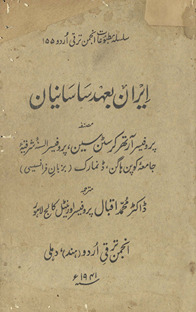 سلسلہ مطبوعات انجمن ترقی اردو ۱۵۵
ایران بعہد ساسانیان
مصنفہ
پروفیسر آرتھر کرسٹن سین، پروفیسر السنۂ شرقیہ
جامعہ کوپن ہاگن، ڈنمارک (بزبان فرانسیسی)
مترجمہ
ڈاکٹر محمد اقبال پروفیسر اورینٹل کالج لاہور
انجمن ترقی اردو (ہند)، دہلی
۱۹۴۱ء